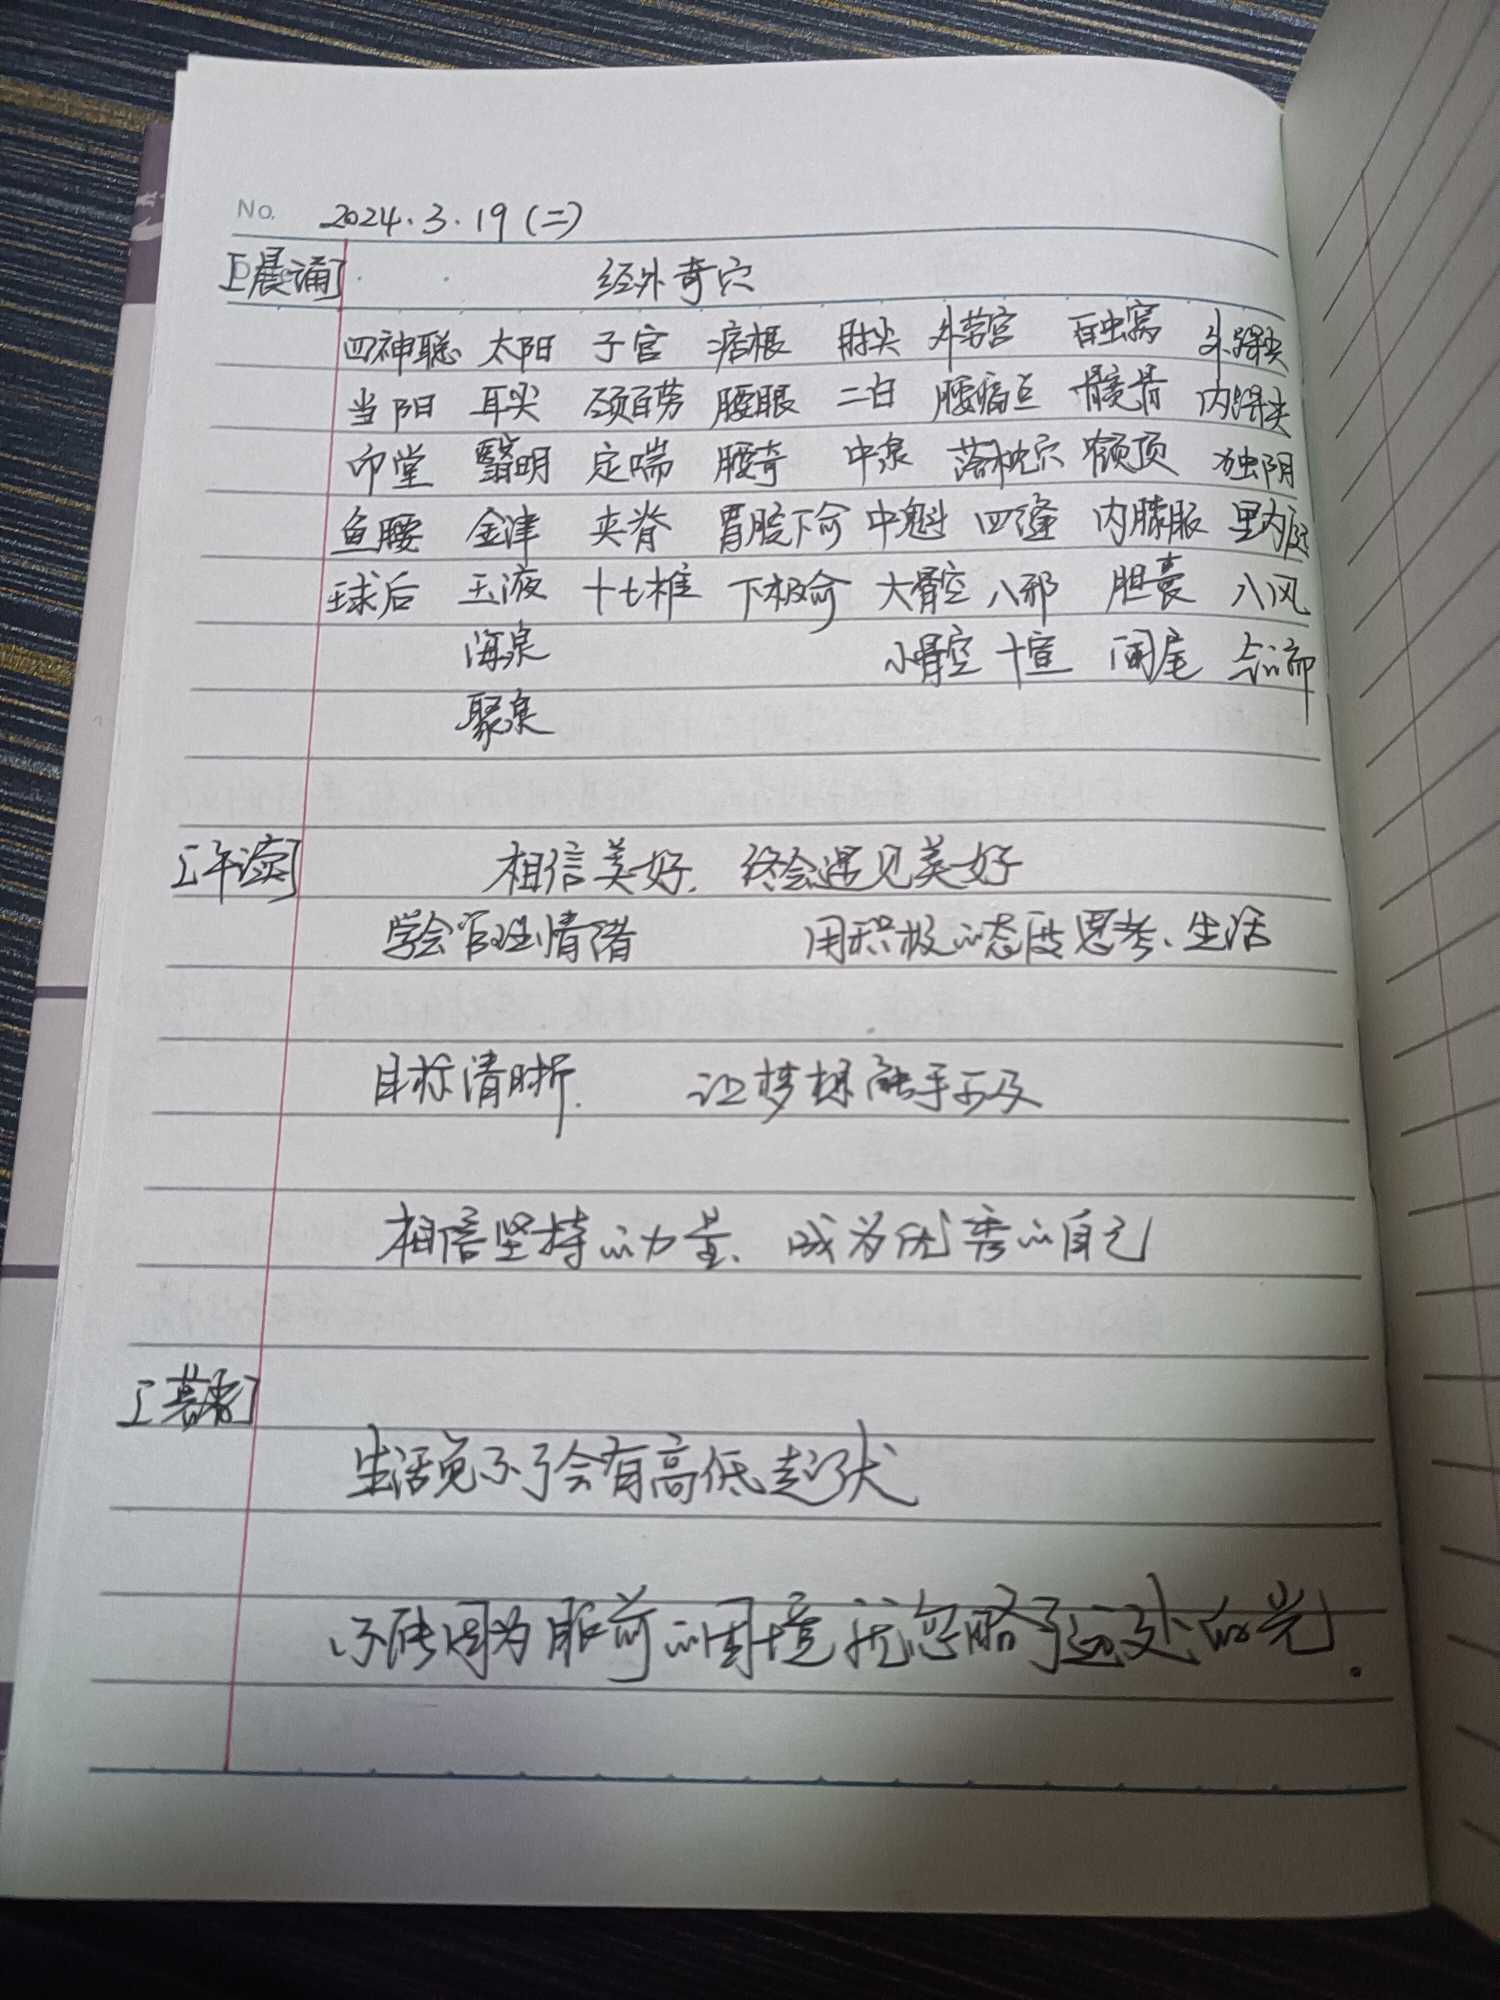 No. 2024.3.19(二)
[晨诵] 经外奇穴
四神聪 太阳 子宫 痞根 肘尖 外劳宫 百虫窝 外踝尖
当阳 耳尖 颈百劳 腰眼 二白 腰痛点 髋骨 内踝尖
印堂 翳明 定喘 腰奇 中泉 落枕穴 鹤顶 独阴
鱼腰 金津 夹脊 胃脘下俞 中魁 四缝 内膝眼 里内庭
球后 玉液 十七椎 下极俞 大骨空 八邪 胆囊 八风
海泉 小骨空 十宣 阑尾
聚泉
[午读] 相信美好. 终会遇见美好
学会管理情绪 用积极的态度思考、生活
目标清晰. 让梦想触手可及
相信坚持的力量、成为优秀的自己
[暮省]
生活免不了会有高低起伏
不能因为眼前的困境就忽略了远处的光.